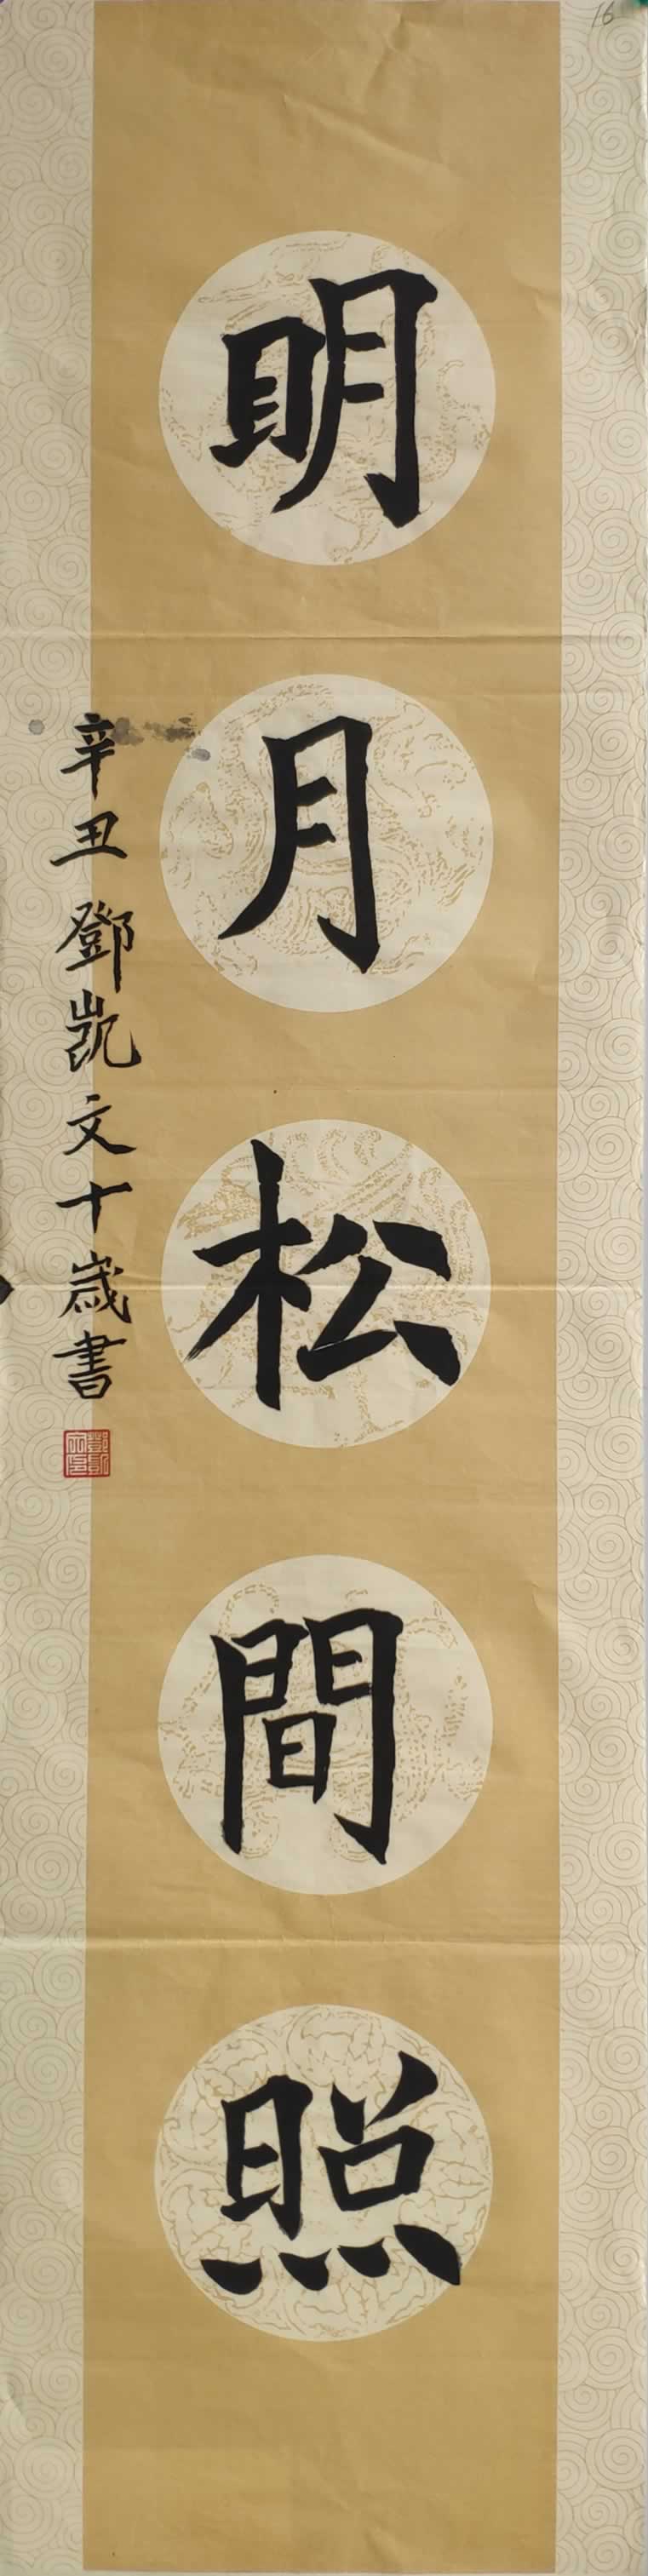 明月松間照
辛丑鄧凯文十歲書
16